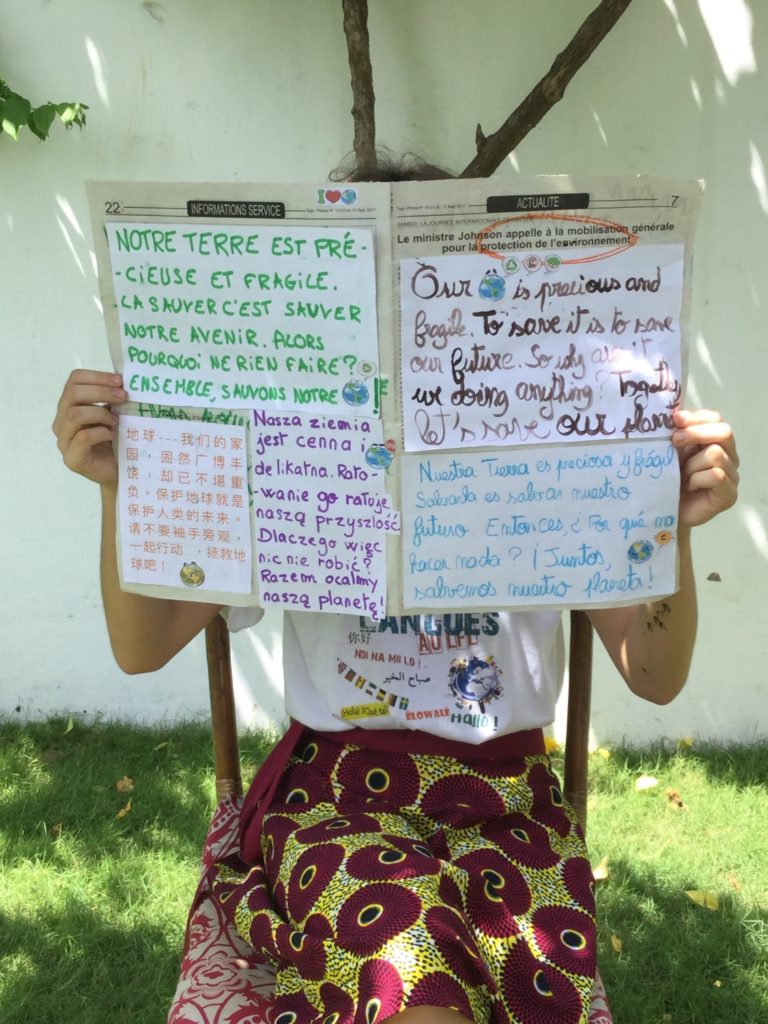 22
INFORMATIONS SERVICE
NOTRE TERRE EST PRÉ-
-CIEUSE ET FRAGILE.
LA SAUVER C'EST SAUVER
NOTRE AVENIR. ALORS
POURQUOI NE RIEN FAIRE?
ENSEMBLE, SAUVONS NOTRE !
地球---我们的家
园，固然广博丰
饶，却已不堪重
负。保护地球就是
保护人类的未来。
请不要袖手旁观，
一起行动，拯救地
球吧！
Nasza ziemia
jest cenna i
delikatna. Rato-
-wanie go ratuje
naszą przyszłość.
Dlaczego więc
nic nie robić?
Razem ocalmy
naszą planetę!
ACTUALITE
7
SAMEDI, LA JOURNEE INTERNATIONALE
Le ministre Johnson appelle à la mobilisation générale
pour la protection de l'environnement
Our is precious and
fragile. To save it is to save
our future. So why aren't
we doing anything? Together
let's save our planet
Nuestra Tierra es preciosa y frágil
Salvarla es salvar nuestro
futuro. Entonces, ¿ Por qué no
hacer nada ? ¡ Juntos,
salvemos nuestro planeta!
LANGUES
AU LFE
你好
NDI NA MII LO !
صباح الخير
¡Hola! ¿Qué tal?
ÉLOWALÉ
Hallo !